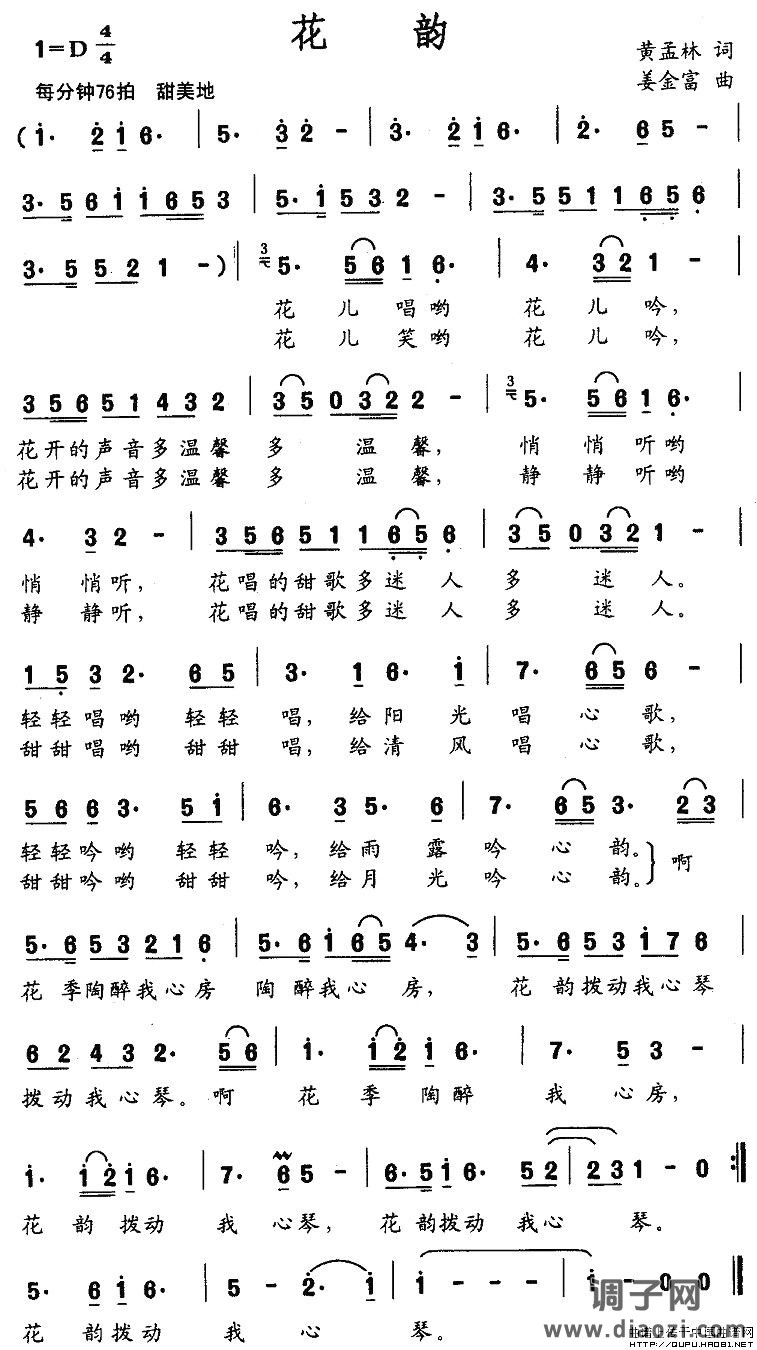 花 韵
1=D 4/4
黄孟林 词
每分钟76拍 甜美地
姜金富 曲
(i· 2̇ i 6· | 5· 3̇ 2̇ - | 3̇· 2̇ i 6· | 2̇· 6 5 - |
3· 5 6 i i 6 5 3 | 5· i 5 3 2 - | 3· 5 5 1 1 6̣ 5̣ 6̣ |
3· 5 5 2 1 -) 5· 5 6 1 6̣· | 4· 3 2 1 - |
花 儿 唱 哟 花 儿 吟，
花 儿 笑 哟 花 儿 吟，
3 5 6 5 1 4 3 2 | 3 5 0 3 2 2 - | 5· 5 6 1 6̣·
花开的声音多温馨 多 温 馨， 悄 悄 听 哟
花开的声音多温馨 多 温 馨， 静 静 听 哟
4· 3 2 - | 3 5 6 5 1 1 6̣ 5̣ 6̣ | 3 5 0 3 2 1 - |
悄 悄 听， 花唱的甜歌多迷 人 多 迷 人。
静 静 听， 花唱的甜歌多迷 人 多 迷 人。
1 5̣ 3 2· 6 5 | 3· 1 6· i | 7· 6 5 6 - |
轻轻唱哟 轻轻 唱，给阳 光 唱 心 歌，
甜甜唱哟 甜甜 唱，给清 风 唱 心 歌，
5 6 6 3· 5 i | 6· 3 5· 6 | 7· 6 5 3· 2 3 |
轻轻吟哟 轻轻 吟，给雨 露 吟 心 韵。
甜甜吟哟 甜甜 吟，给月 光 吟 心 韵。} 啊
5· 6 5 3 2 1 6̣ | 5· 6 i 6 5 4· 3 | 5· 6 5 3 i 7 6
花 季陶醉我心房 陶 醉我心 房， 花 韵拨动我心琴
6 2 4 3 2· 5 6 | i· i 2̇ i 6· | 7· 5 3 - |
拨动我心琴。啊 花 季 陶醉 我 心房，
i· i 2̇ i 6· | 7· 6 5 - | 6· 5 i 6· 5 2 | 2 3 1 - 0 :‖
花 韵 拨动 我 心琴， 花 韵拨动 我心 琴。
5· 6 i 6· | 5 - 2̇· i | i - - - | i - 0 0 ‖
花 韵拨动 我 心 琴。
调子网
www.diaozi.com
http://QUPU.HAO81.NET